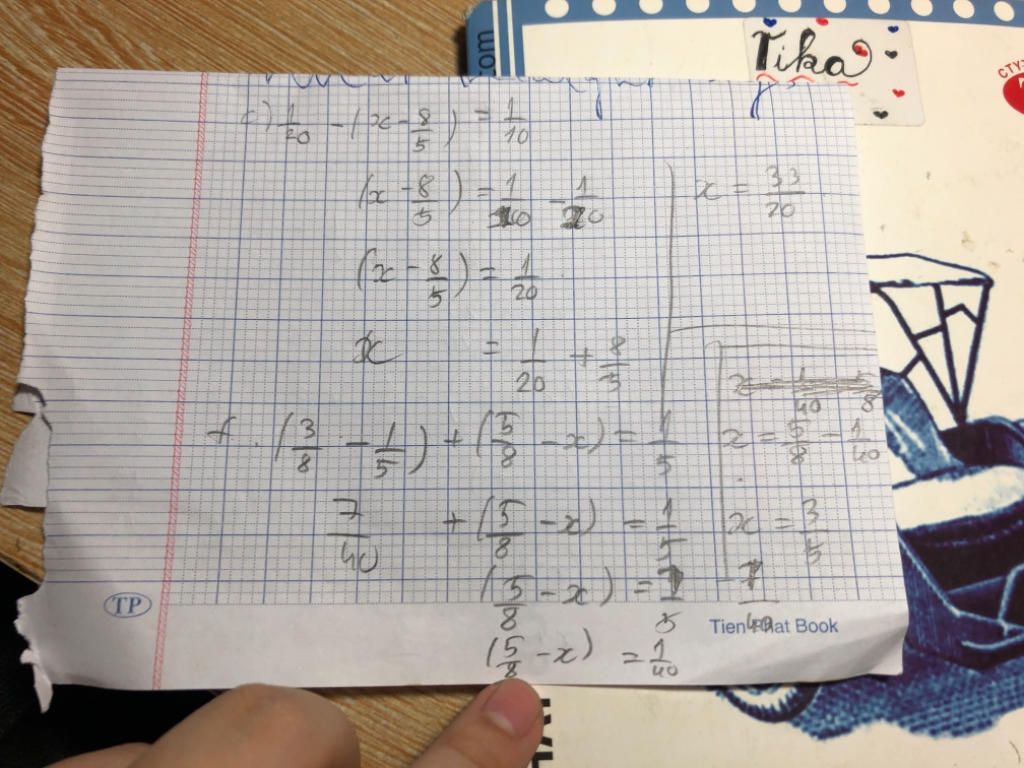 Tika
.com
c) 1/20 - (x - 8/5) = 1/10
(x - 8/5) = 1/10 - 1/20
(x - 8/5) = 1/20
x = 1/20 + 8/5
x = 33/20
f. (3/8 - 1/5) + (5/8 - x) = 1/5
7/40 + (5/8 - x) = 1/5
(5/8 - x) = 1/5 - 7/40
(5/8 - x) = 1/40
x = 5/8 - 1/40
x = 3/5
TP
Tien Phat Book